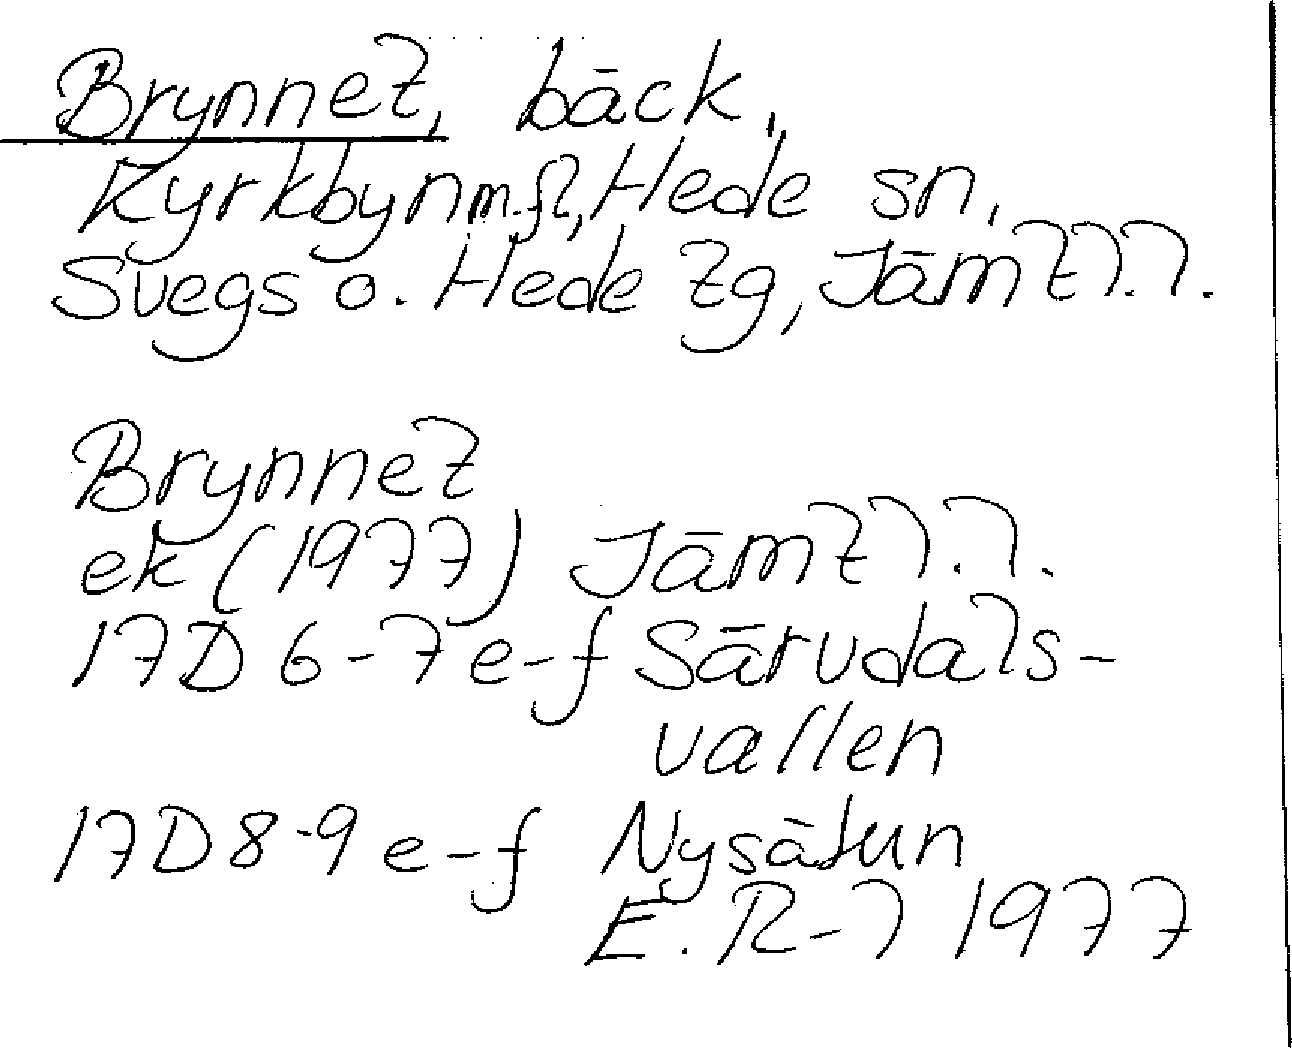 Brynnet, bäck,
Kyrkbyn m.fl., Hede sn,
Svegs o. Hede tg, Jämtl.l.
Brynnet
ek (1977) Jämtl.l.
17D 6-7 e-f Särvdals-
vallen
17D 8-9 e-f Nysätern
E. R-l 1977